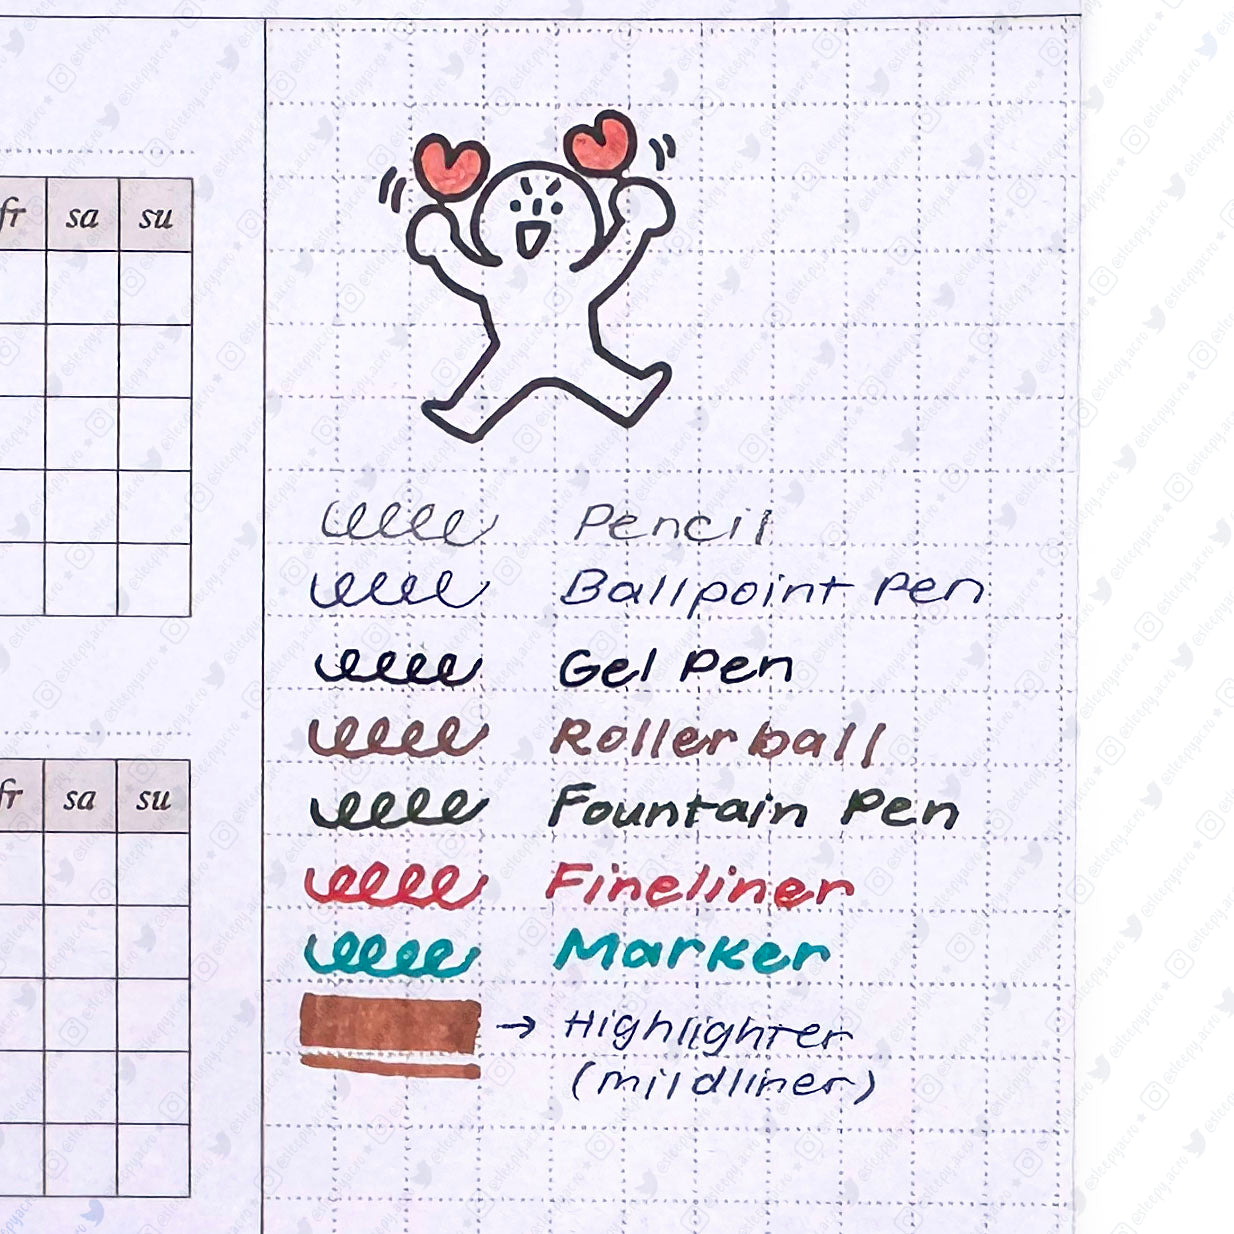 fr sa su
Pencil
Ballpoint Pen
Gel Pen
Rollerball
Fountain Pen
Fineliner
Marker
fr sa su
→ Highlighter
(mildliner)
@sleepy.ac.ro